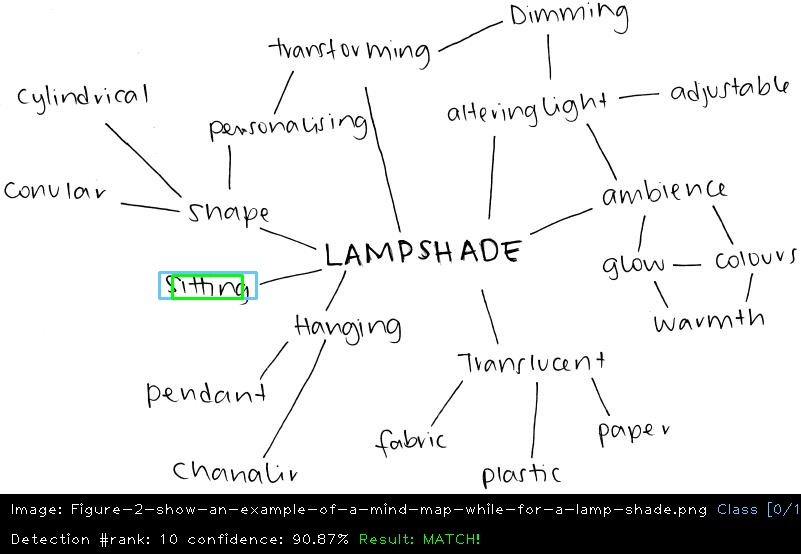 Dimming
transforming
Cylindrical
adjustable
altering light
personalising
conular
shape
ambience
LAMPSHADE
glow
colours
Sitting
warmth
Hanging
Translucent
pendant
fabric
paper
chanaliv
plastic
Image: Figure-2-show-an-example-of-a-mind-map-while-for-a-lamp-shade.png Class [0/1
Detection #rank: 10 confidence: 90.87% Result: MATCH!